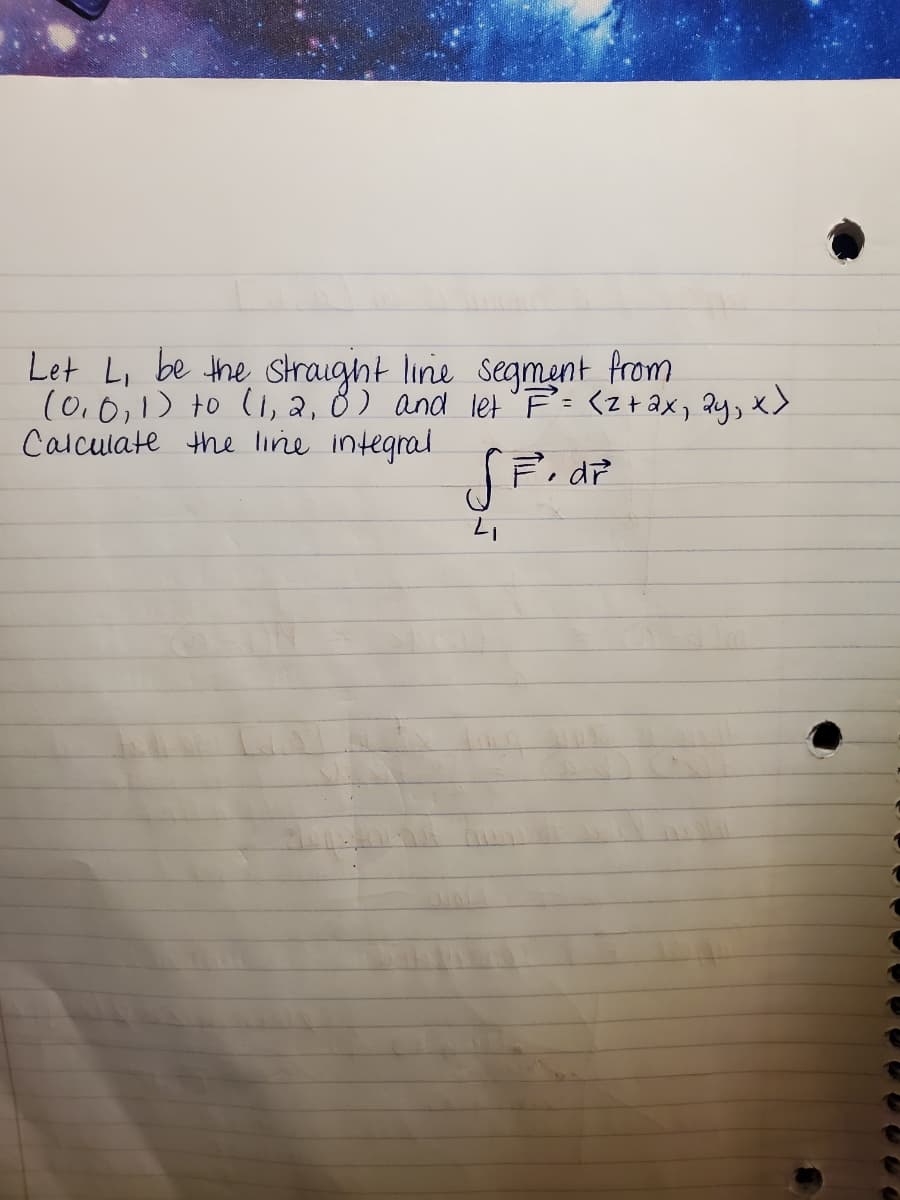 Let L₁ be the straight line segment from
(0,0,1) to (1,2,8) and let F⃗ = <z+2x, 2y, x>
Calculate the line integral
∫ F⃗ · dr⃗
L₁